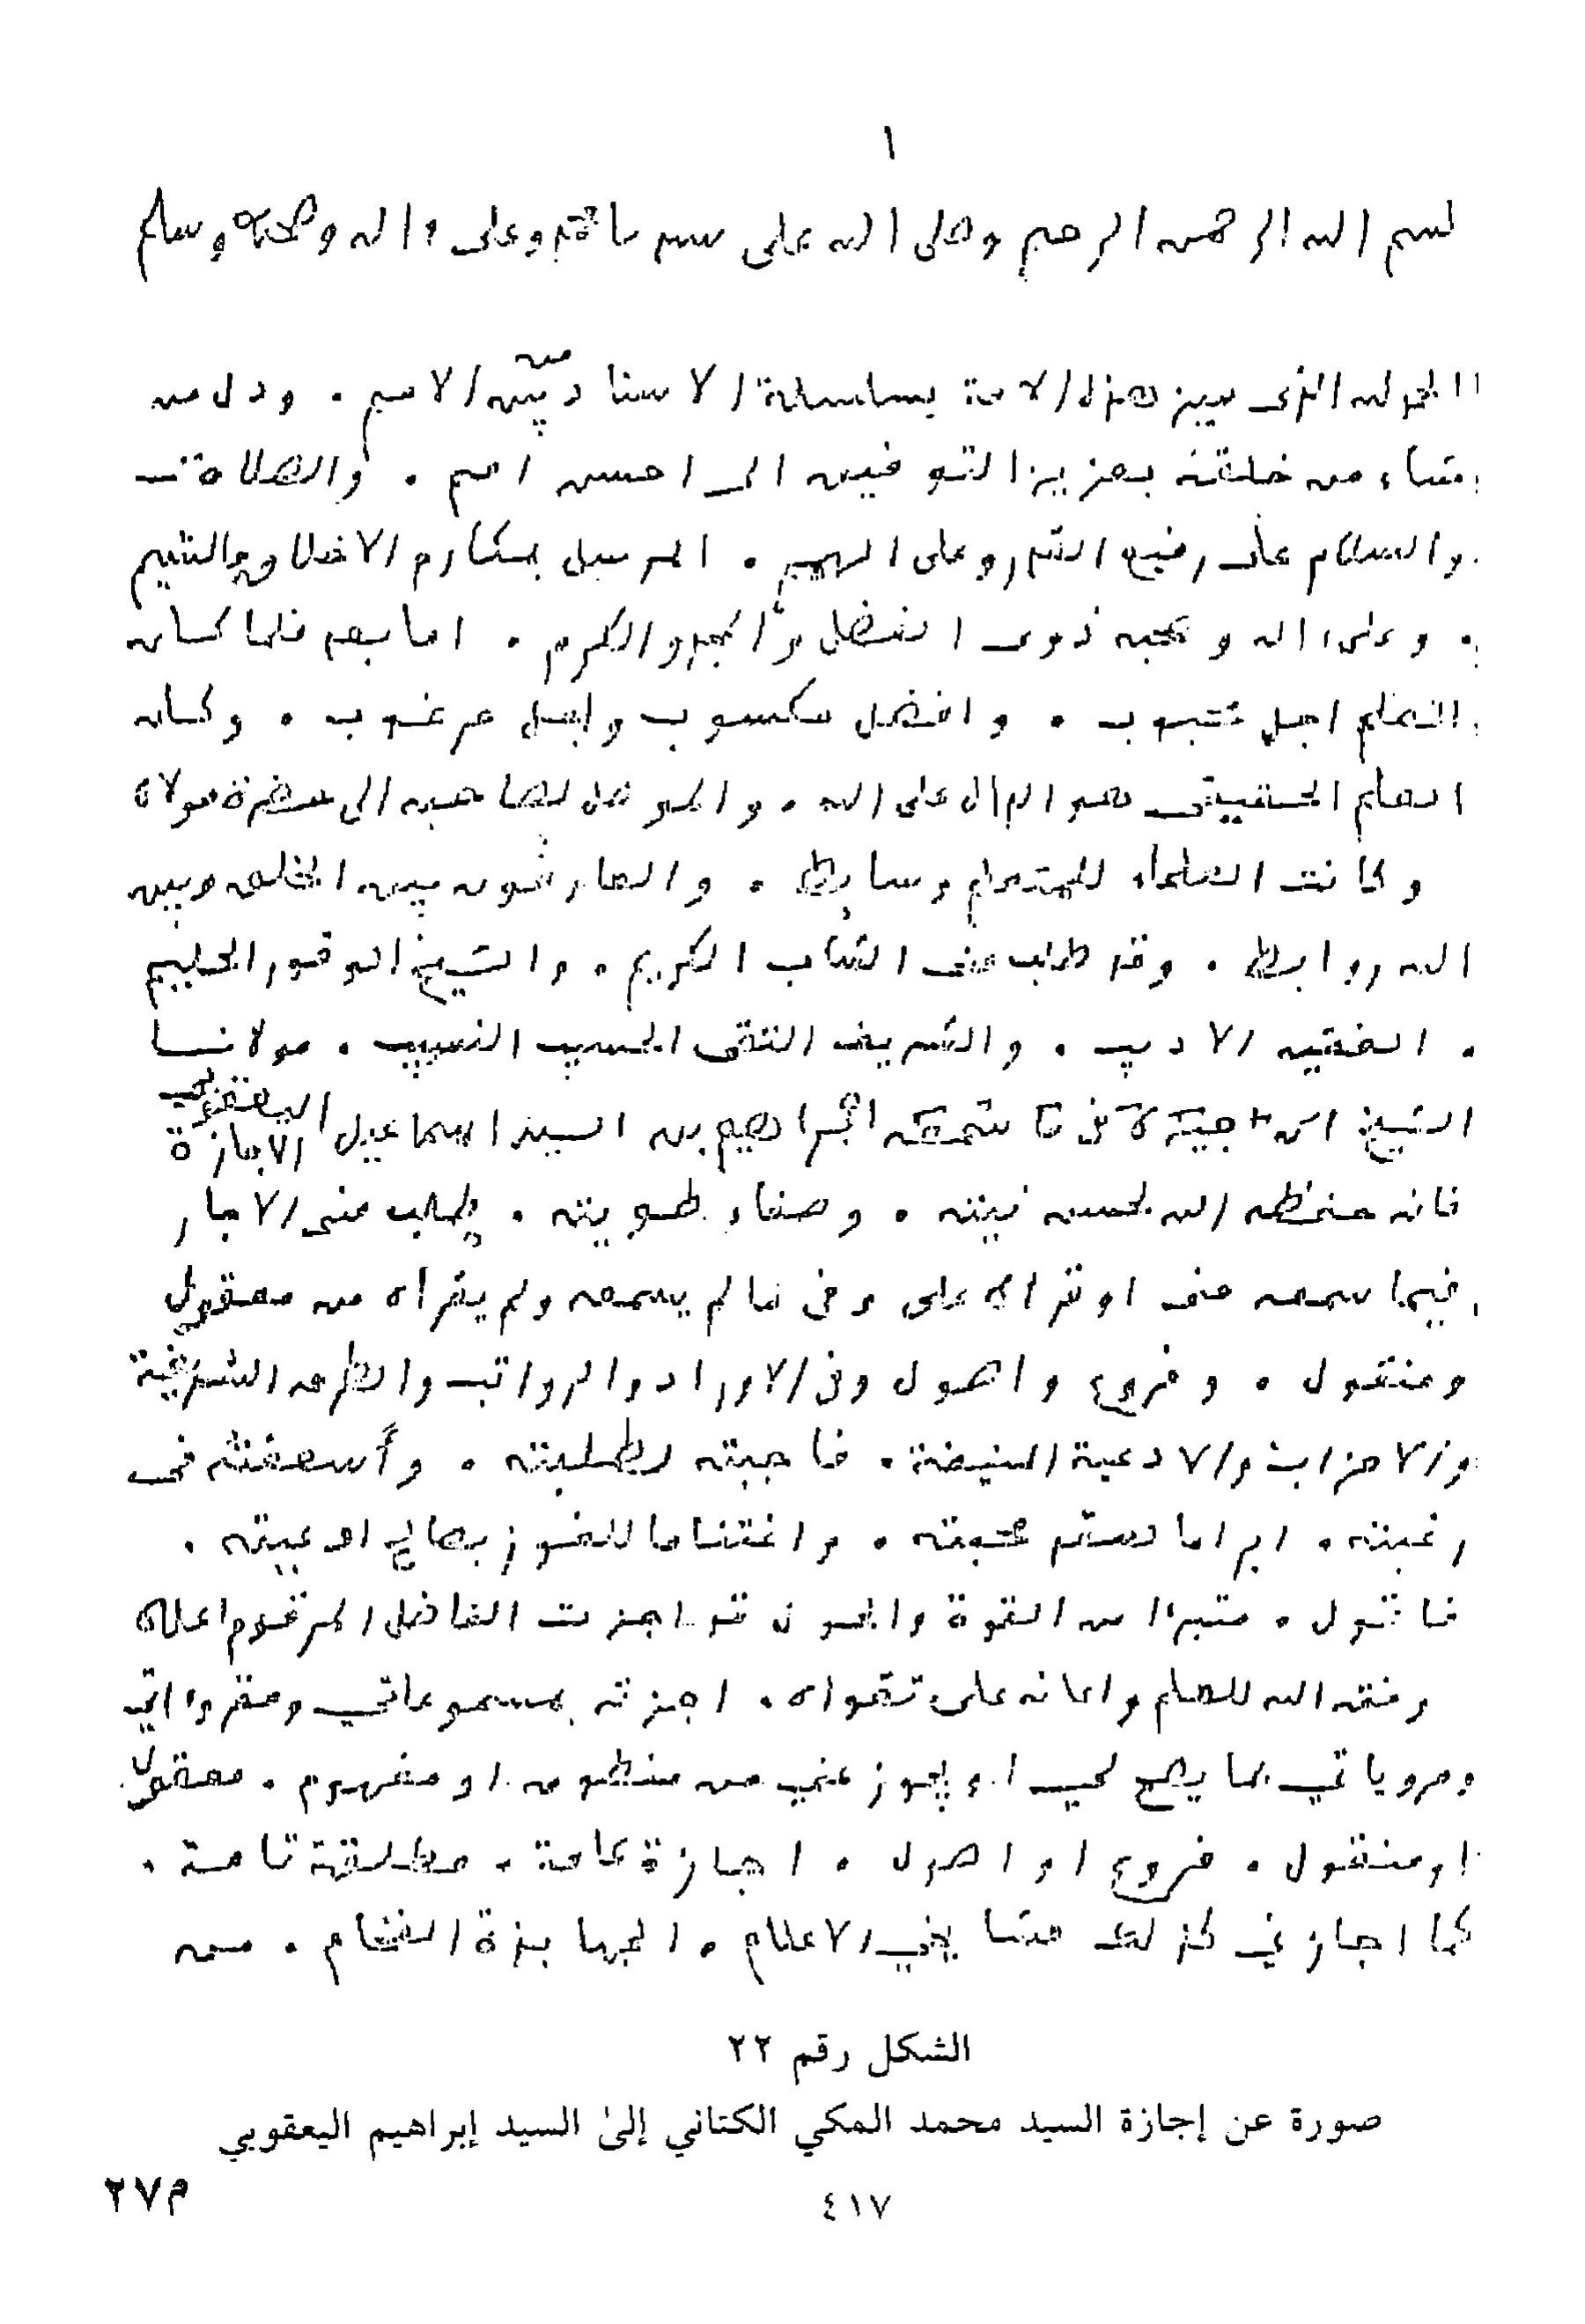 ١
بسم الله الرحمن الرحيم وصلى الله على سيدنا محمد وعلى ءاله وصحبه وسلم
الحمد لله الذى ميز هذه الامة بسلسلة الاسناد من بين الامم . ودل من
شاء من خلقه بعزيز التوفيق الى احسن امم . والصلاة
والسلام على رفيع القدر وعلى الهمم . المرسل بمكارم الاخلاق والشيم
. وعلى ءاله وصحبه ذوى الفضل والمجد والكرم . اما بعد فلما كان
العلم اجل محبوب . وافضل مكسوب واجل مرغوب . وكان
العلم الحقيقى هو الدال على الله . والموصل لصاحبه الى حضرة مولاه
وكانت العلماء للمتعلم وسايط . والعارفون بين الخلق وبين
الله روابط . وقد طلب منى الشاب الكريم . والشيخ الوقور الحليم
. الفقيه الاديب . والشريف التقى الحسيب النسيب . مولانا
الشيخ ابراهيم بن السيد اسماعيل اليعقوبي
فانه حفظه الله لحسن نيته . وصفاء طويته . يطلب منى الاجازة
فيما سمعه منى او قراه على وفى ما لم يسمعه ولم يقراه من معقول
ومنقول . وفروع واصول وفى الاوراد والرواتب والطرق الشريفة
والاحزاب والادعية المنيفة . فاجبته لطلبته . وأسعفته في
رغبته . ابراما لعقد محبته . واغتناما للفوز بصالح ادعيته .
فاقول . متبرا من القوة والحول قد اجزت الفاضل المرقوم اعلاه
وفقه الله للعلم واعانه على تقواه . اجزته بمسموعاتي ومقروءاتي
ومروياتي بما يصح لي او يجوز عني من منطوق او مفهوم . معقول
او منقول . فروع او اصول . اجازة عامة . مطلقة تامة .
كما اجازني كذلك مشايخي الاعلام . الجهابذة الفخام . من
الشكل رقم ٢٢
صورة عن إجازة السيد محمد المكي الكتاني إلىٰ السيد إبراهيم اليعقوبي
م٢٧
٤١٧